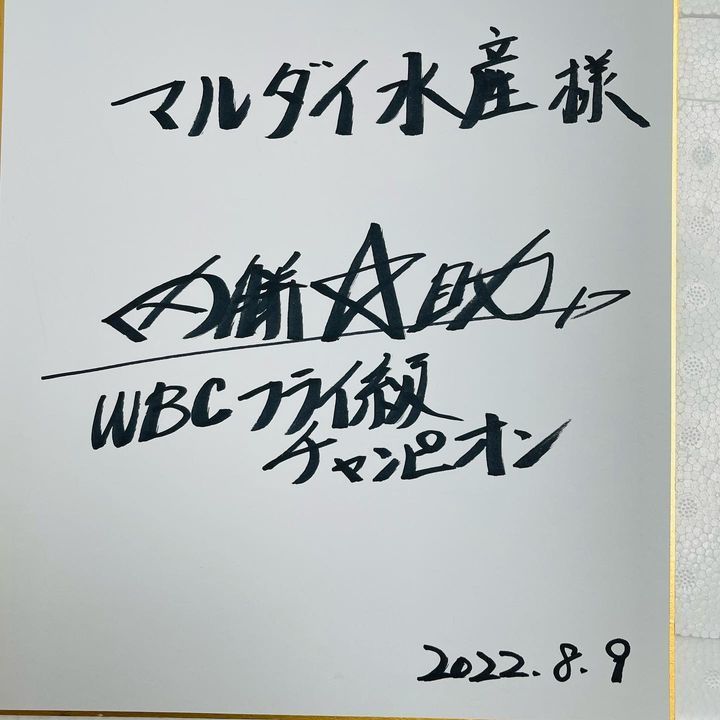 マルダイ水産様
内藤大助
WBCフライ級
チャンピオン
2022.8.9